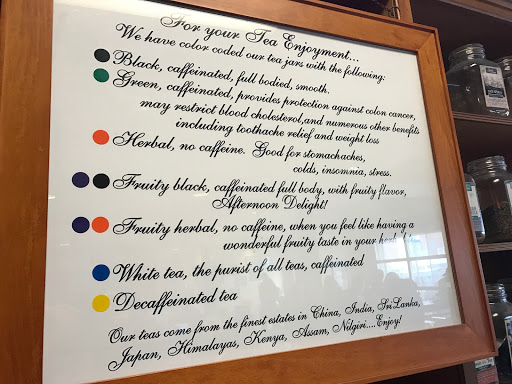 For your Tea Enjoyment...
We have color coded our tea jars with the following:
Black, caffeinated, full bodied, smooth.
Green, caffeinated, provides protection against colon cancer,
may restrict blood cholesterol,and numerous other benefits
including toothache relief and weight loss
Herbal, no caffeine. Good for stomachaches,
colds, insomnia, stress.
Fruity black, caffeinated full body, with fruity flavor,
Afternoon Delight!
Fruity herbal, no caffeine, when you feel like having a
wonderful fruity taste in your
White tea, the purist of all teas, caffeinated
Decaffeinated tea
Our teas come from the finest estates in China, India, Sri Lanka,
Japan, Himalayas, Kenya, Assam, Nilgiri....Enjoy!